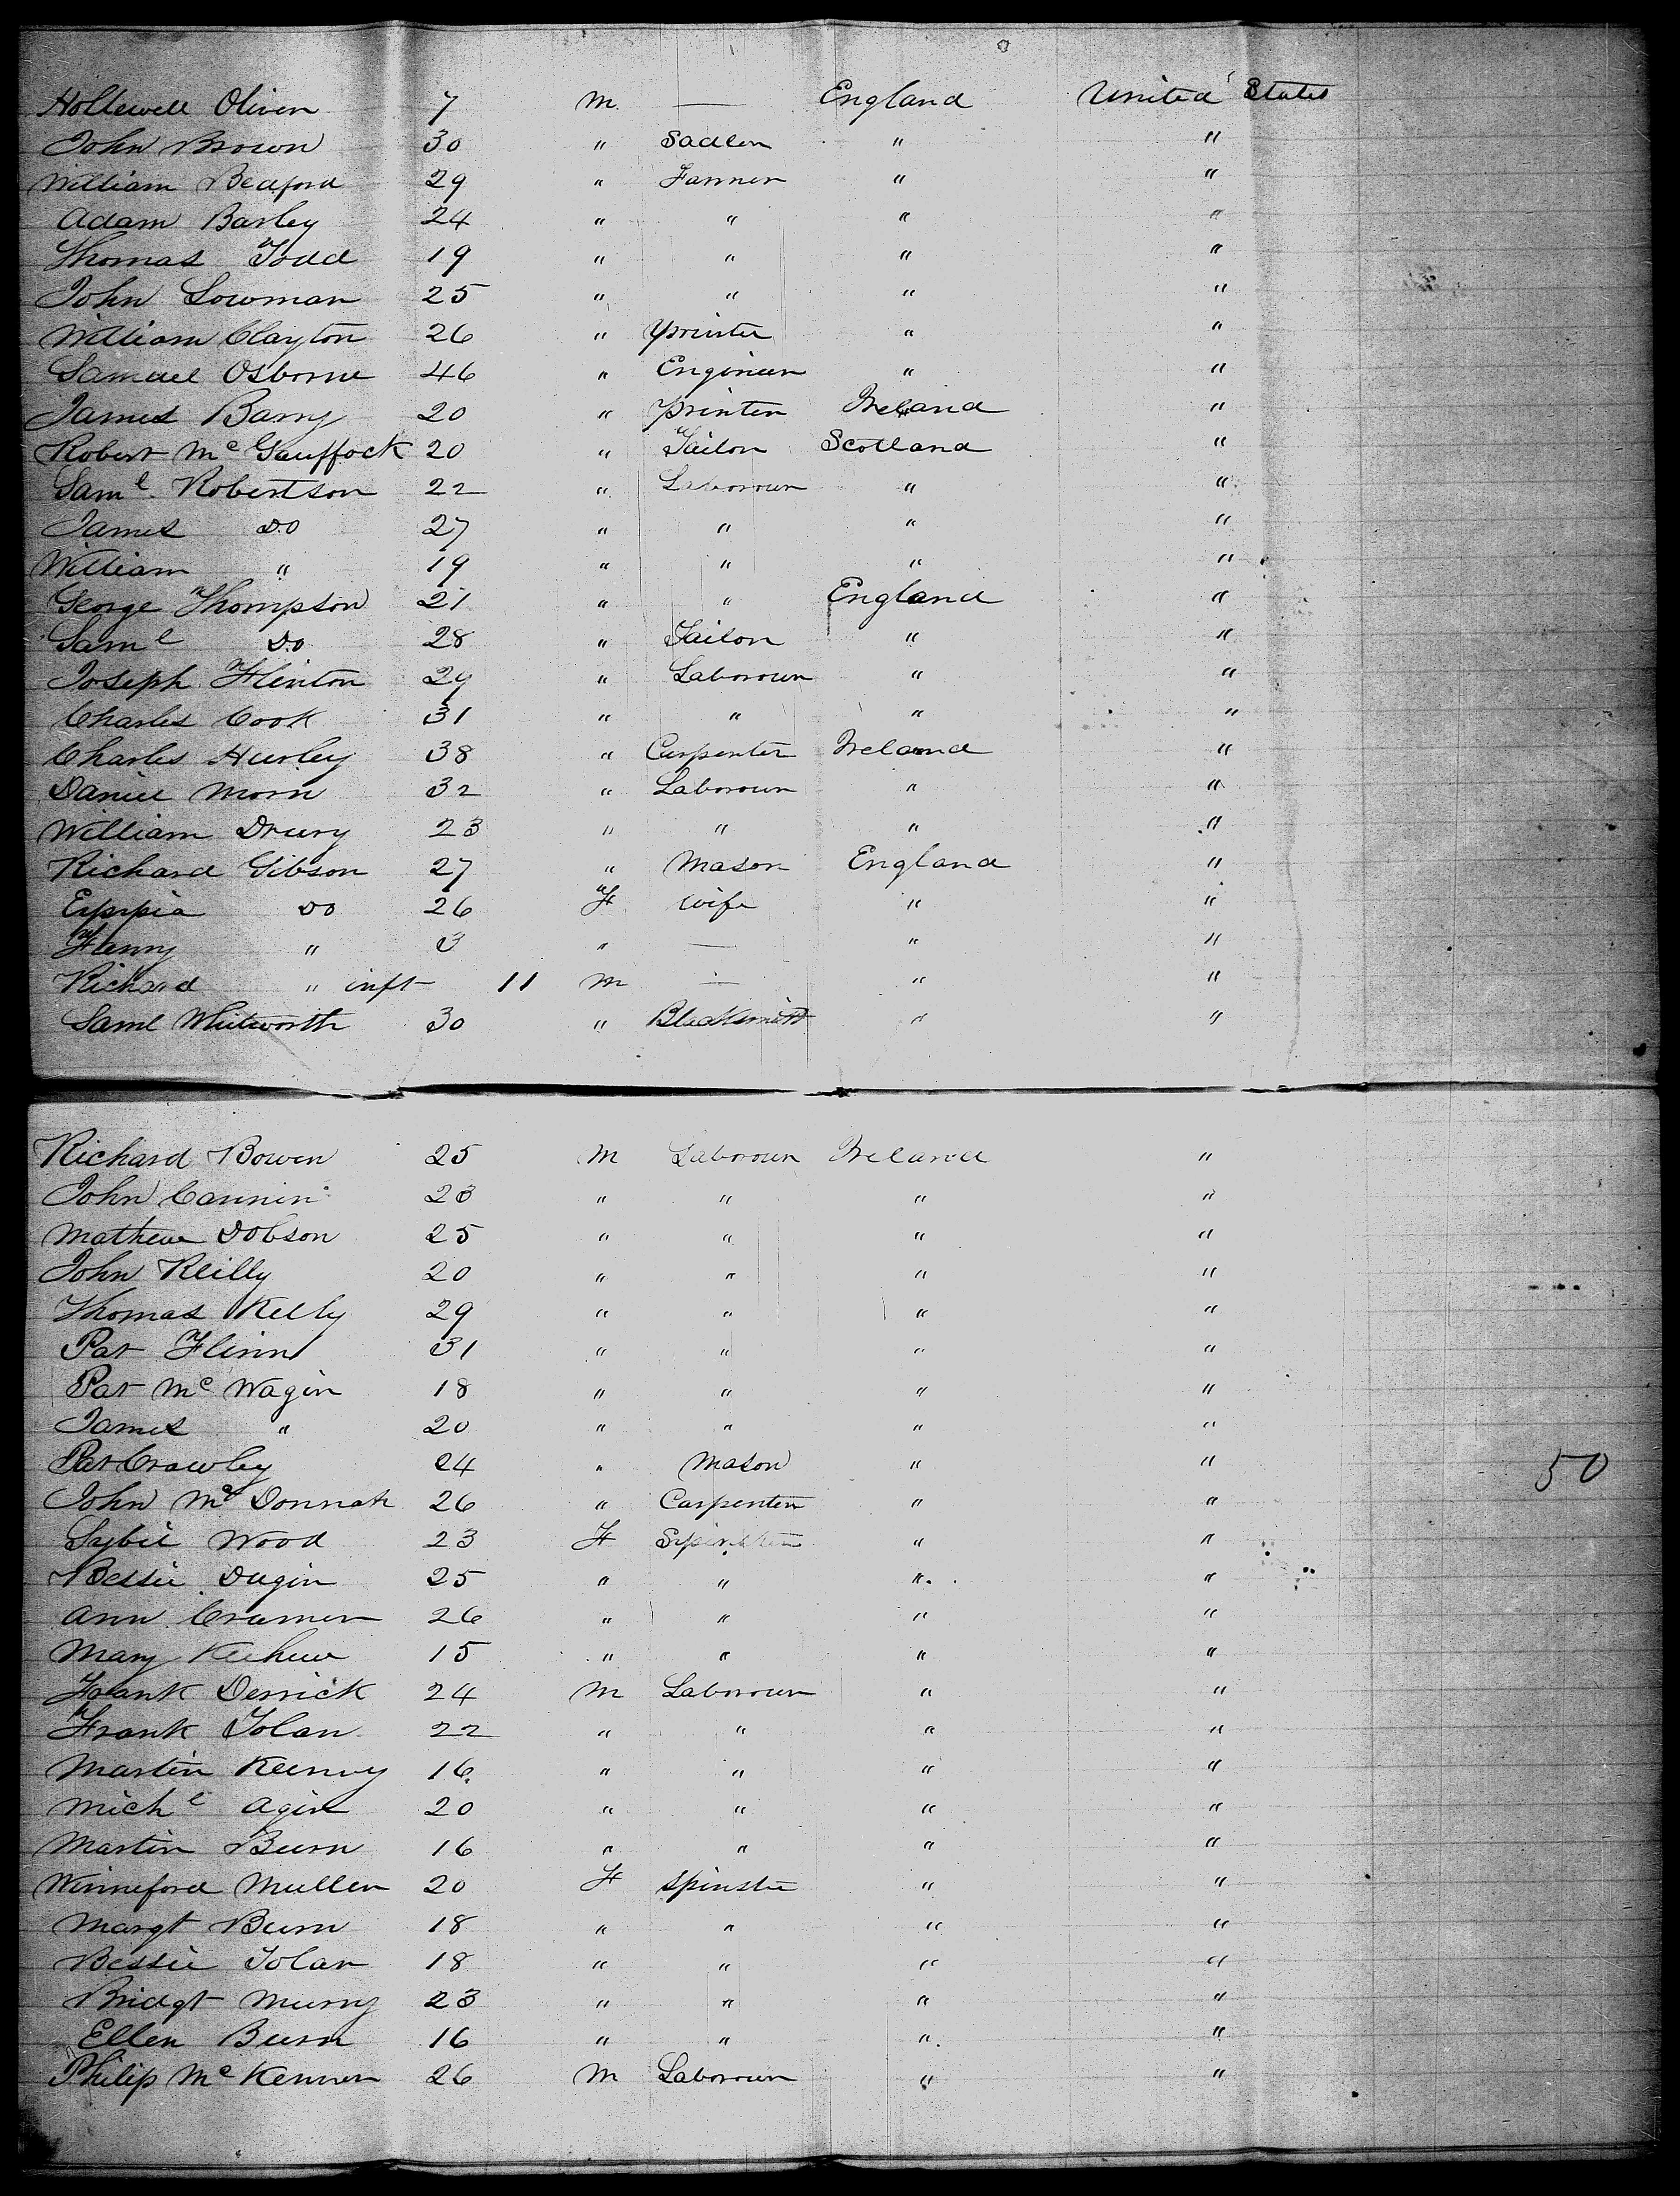 Hollewell Oliver 7 M. — England United States
John Brown 30 " Sadler " "
William Bedford 29 " Farmer " "
Adam Barley 24 " " " "
Thomas Todd 19 " " " "
John Lowman 25 " " " "
William Clayton 26 " Printer " "
Samuel Osborne 46 " Enginier " "
James Barry 20 " Printer Ireland "
Robert Mc Gauffock 20 " Tailor Scotland "
Saml. Robertson 22 " Laborour " "
James Do 27 " " " "
William " 19 " " " "
George Thompson 21 " " England "
Saml Do 28 " Tailor " "
Joseph Flinton 29 " Laborour " "
Charles Cook 31 " " " "
Charles Hurley 38 " Carpenter Ireland "
Daniel Morn 32 " Laborour " "
William Drury 23 " " " "
Richard Gibson 27 " Mason England "
Eppia Do 26 F Wife " "
Fanny " 3 " — " "
Richard " inft 11 M — " "
Saml Whitworth 30 " Blacksmith " "
Richard Bowen 25 M Laborour Ireland "
John Cannin 23 " " " "
Mathew Dobson 25 " " " "
John Reilly 20 " " " "
Thomas Kelly 29 " " " "
Pat Flinn 31 " " " "
Pat Mc Wagin 18 " " " "
James " 20 " " " "
Pat Crawley 24 " Mason " " 50
John Mc Donnah 26 " Carpenter " "
Sybil Wood 23 F Spinster " "
Bessie Dugin 25 " " " "
Ann Cramer 26 " " " "
Mary 15 " " " "
Frank Derrick 24 M Laborour " "
Frank Tolan 22 " " " "
Martin Keenny 16 " " " "
Michl Agin 20 " " " "
Martin Burn 16 " " " "
Winneford Mullen 20 F Spinster " "
Margt Burn 18 " " " "
Bessie Tolan 18 " " " "
Bridgt Murry 23 " " " "
Ellen Burn 16 " " " "
Philip Mc Kenner 26 M Laborour " "